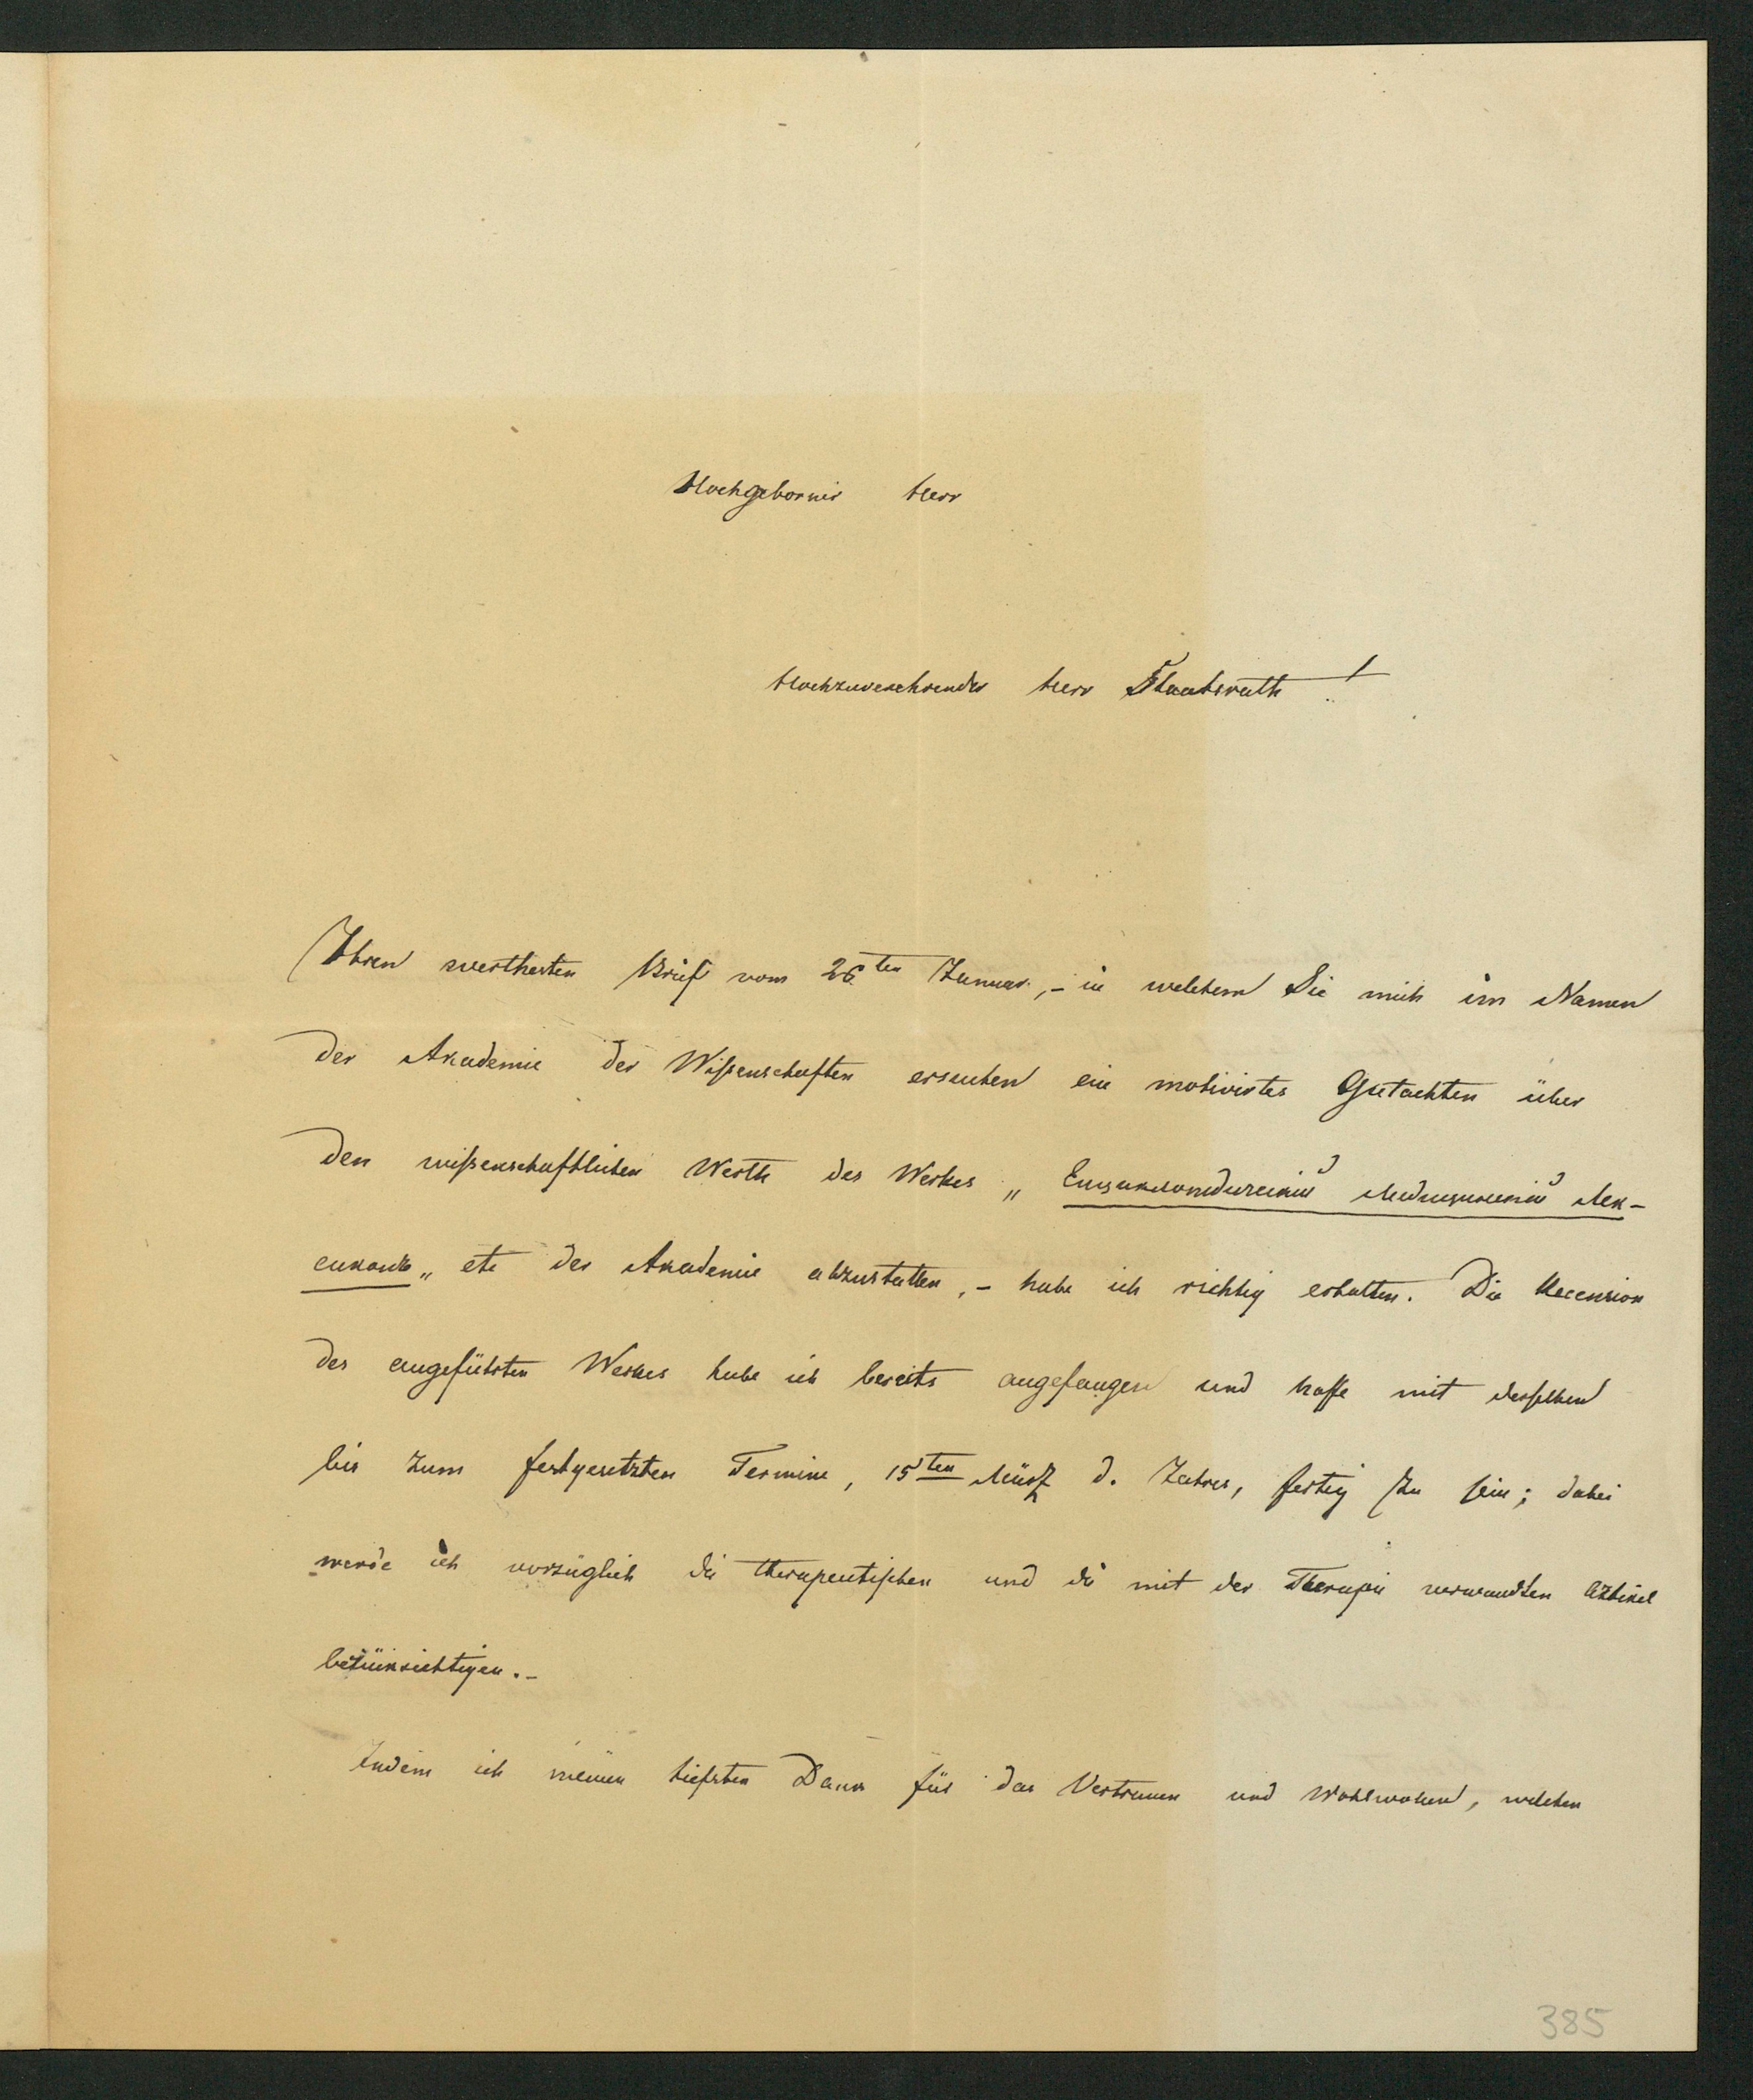 Hochgeborner Herr
Hochzuverehrender Herr Staatsrath!
Ihren werthesten Brief vom 26ten Januar, – in welchem Sie mich im Namen
der Akademie der Wißenschaften ersuchen ein motivirtes Gutachten über
den wißenschaftlichen Werth des Werkes „Энциклопедическій Медицинскій Лек-
сиконъ„ etc der Akademie abzustatten, – habe ich richtig erhalten. Die Recension
des angeführten Werkes habe ich bereits angefangen und hoffe mit derselben
bis zum festgesetzten Termine, 15ten März d. Jahres, fertig zu sein; dabei
werde ich vorzüglich die therapeutischen und die mit der Therapie verwandten Artikel
berüksichtigen. –
Indem ich meinen tiefsten Dank für das Vertrauen und Wohlwollen, welchen
385